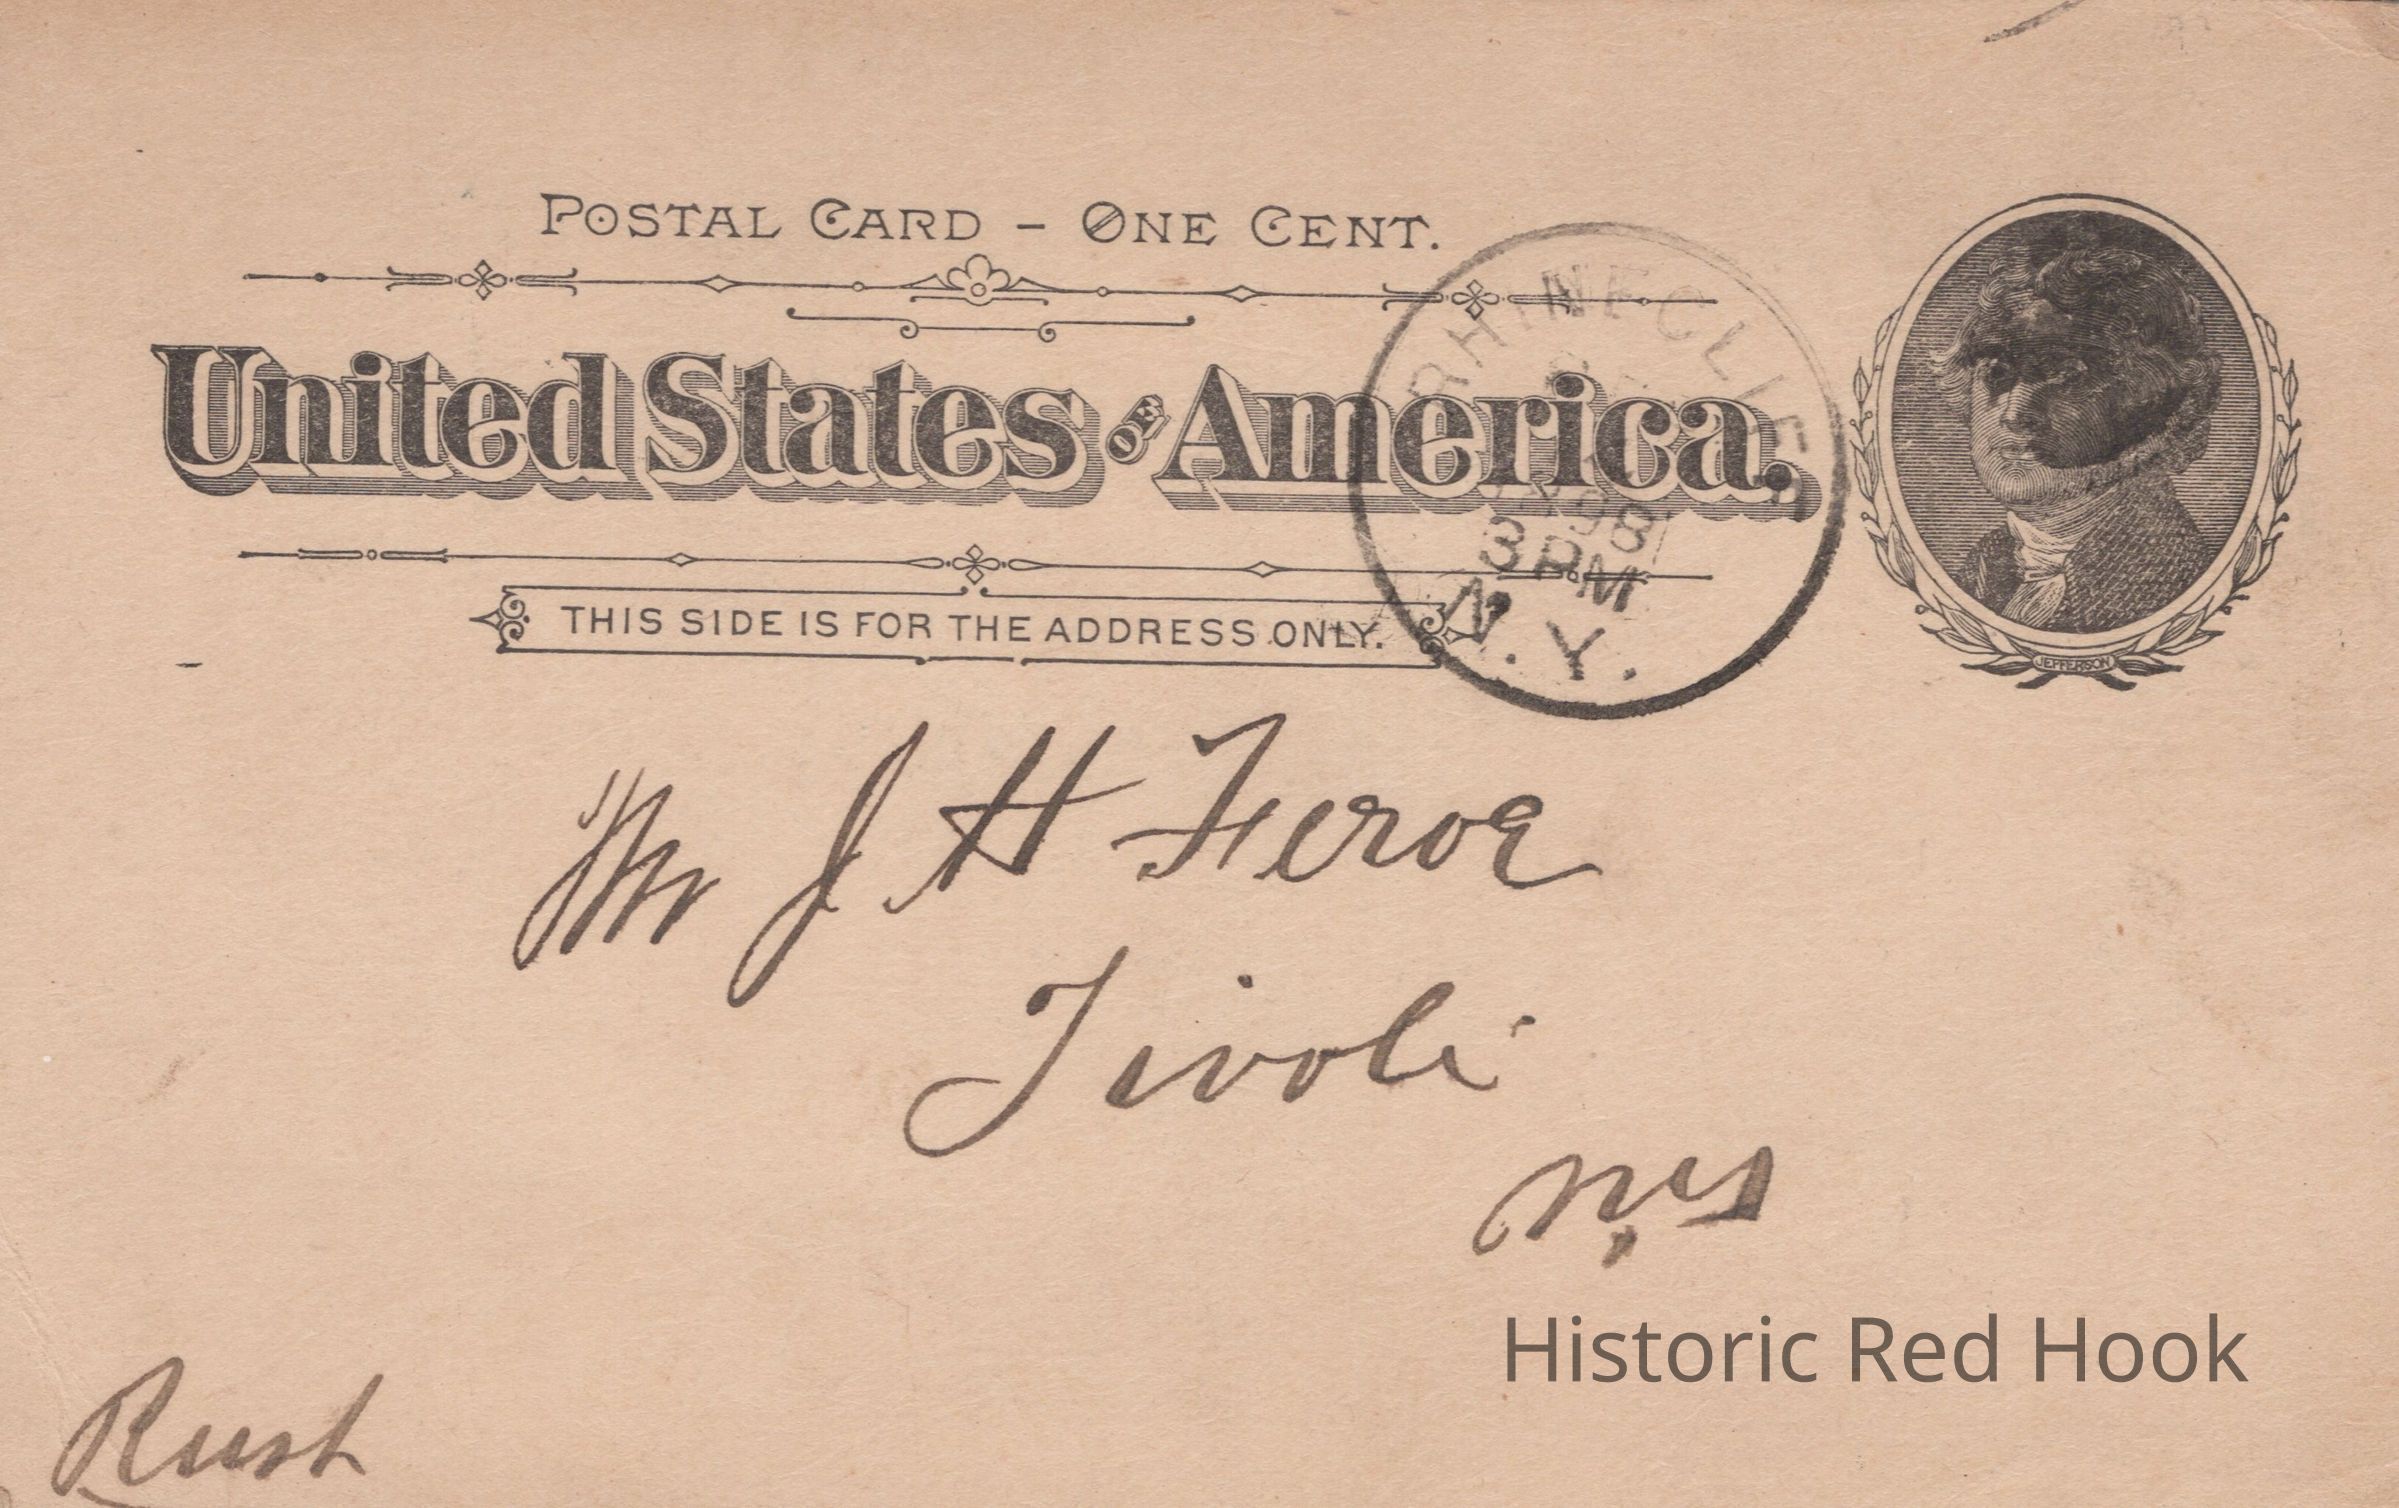 POSTAL CARD – ONE CENT.
United States OF America,
THIS SIDE IS FOR THE ADDRESS ONLY.
RHINECLIFF
98
3 PM
N. Y.
JEFFERSON
Mr J H Feroe
Tivoli
Rush
Historic Red Hook